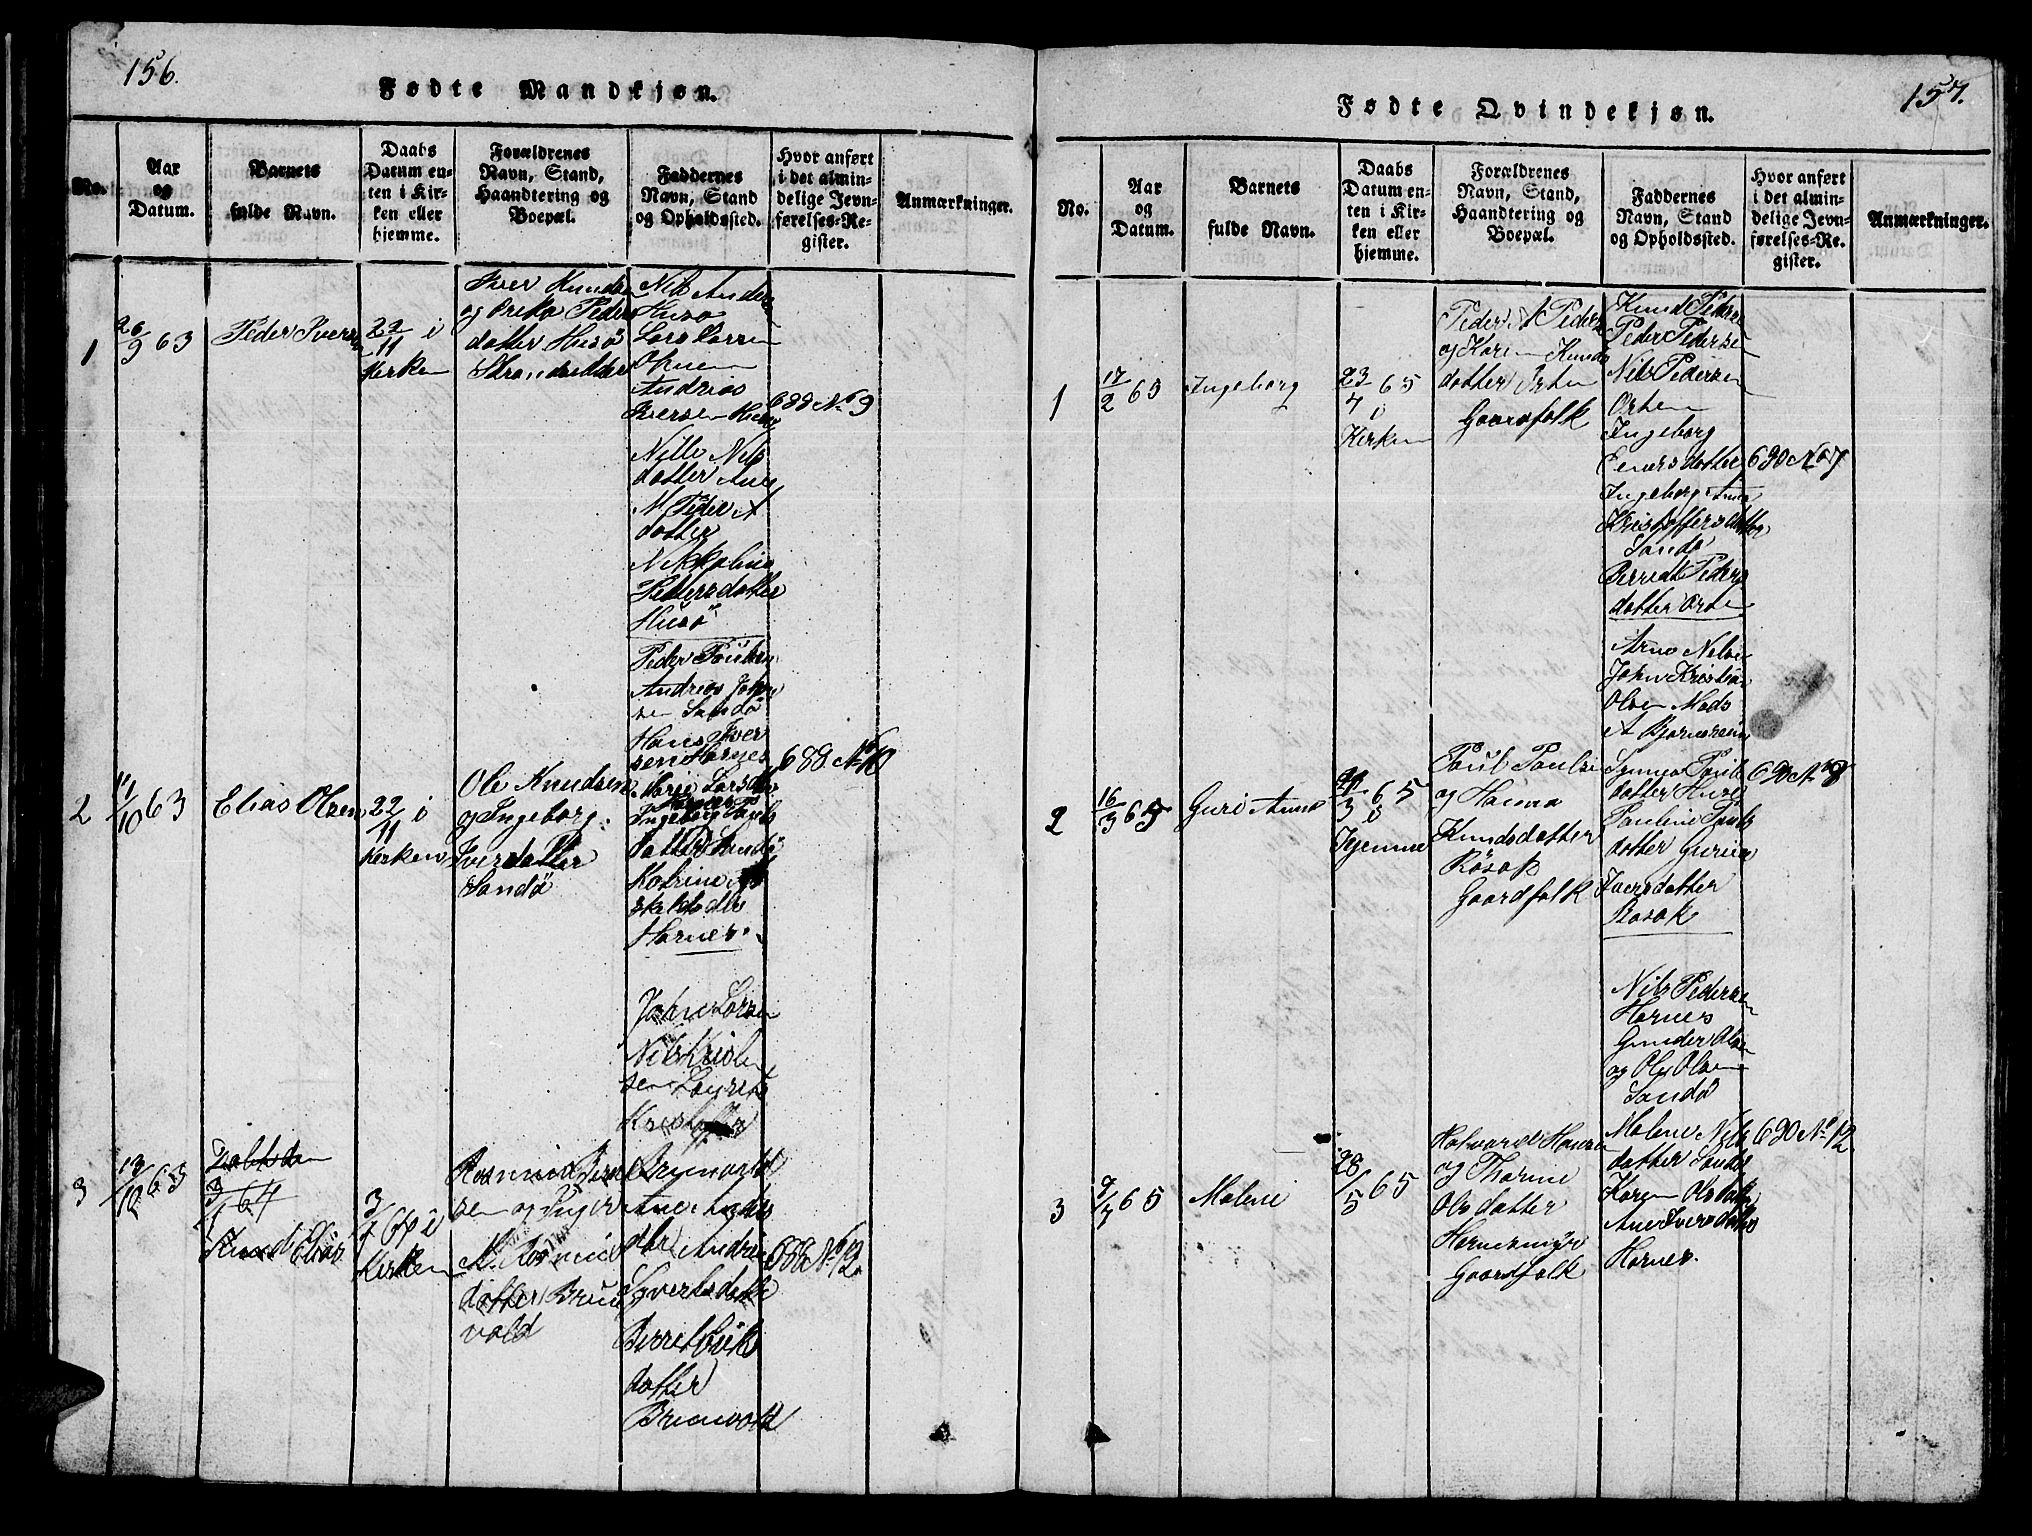 156.
Fødte Mandkjøn.
No.
Aar og Datum.
Barnets fulde Navn.
Daabs Datum enten i Kirken eller hjemme.
Forældrenes Navn, Stand, Haandtering og Boepæl.
Faddernes Navn, Stand og Opholdssted.
Hvor anført i det almindelige Jevnførelses-Register.
Anmærkninger.
1
26/9 63
Peder Iversen
22/11 i
Kirken
Iver Knudsen
og Peders
datter Husö
Nils Anders
Husö
Lars Larsen
Andreas
Iversen Husö
Nille Nils
datter
M Peder A
datter
Nikkoline
Petersdatter
Husö
688 No 9
2
11/10 63
Elias Olsen
22/11 i
Kirken
Ole Knudsen
og Ingeborg
Iversdatter
Sandö
Peder Poulsen
Andreas Johan
sen Sandö
Hans Iver
sen Harnes
Marie Larsdtr
Harnes
Ingeborg Pouls
datter Sandö
Katrine
Harnes.
689 No 10
3
13/10 63
Döbt den
3/1 64
Knud Elias
3/1 64 i
Kirken
Rasmus
sen og Inger
M. Rasmus
datter Brun
vold
John Larsen
Nils Kristen
sen Laurits
Brunvold
Ane
dtr Andrea
Syvertsdatter
Berret
datter
Brunvold
688 No 12
157.
Fødte Qvindekjøn.
No.
Aar og Datum.
Barnets fulde Navn.
Daabs Datum enten i Kirken eller hjemme.
Forældrenes Navn, Stand, Haandtering og Boepæl.
Faddernes Navn, Stand og Opholdssted.
Hvor anført i det almindelige Jevnførelses-Register.
Anmærkninger.
1
17/2 65
Ingeborg
23/4 65
i
Kirken
Peder A Peders
og Karen Knuds
datter Orten
Gaardfolk
Knud Peders
Peder Pedersen
Nils Pedersen
Orten
Ingeborg
Einersdatter
Ingeborg Anna
Kristoffersdatter
Sandö
Berredt Peders
datter Orten
690 No 7
2
16/3 65
Guri Anna
/3 65
Hjemme
Poul Poulsen
og Hanna
Knudsdatter
Rösok
Gaardfolk
Arne Nelsen
John Kristian
Olsen Mads
A Bjørnerem
Synnva Pouls
datter Husö
Pauline Pouls
datter Gurine
Iversdatter
Rösok
690 No 8
3
7/3 65
Malene
28/5 65
Halvard Hansen
og Thorine
Olsdatter
Harnesmyr
Gaardfolk
Nils Pedersen
Harnes
Gunder Olsen
og Ole Olsen
Sandö
Malene Nils
datter Sandö
Karen Olsdatter
Ane Iversdatter
Harnes.
690 No 12